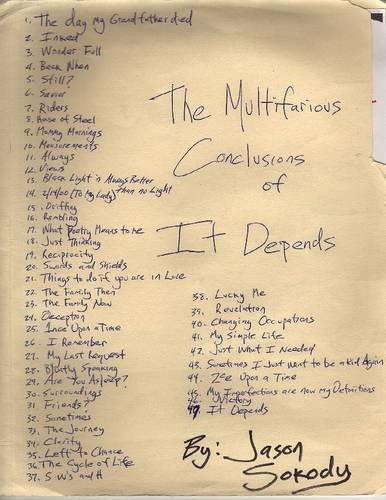 1. The day my Grandfather died
2. Inked
3. Wonder Full
4. Back When
5. Still?
6. Savior
7. Riders
8. House of Steel
9. Mommy Mornings
10. Measurements
11. Always
12. Views
13. Black Light is Always Better than no Light
14. 2/14/00 (To My Lady)
15. Drifting
16. Rambling
17. What Poetry Means to me
18. Just Thinking
19. Reciprocity
20. Swords and Shields
21. Things to do if you are in Love
22. The Family Then
23. The Family Now
24. Deception
25. Once Upon a Time
26. I Remember
27. My Last Request
28. Bluntly Speaking
29. Are You Asleep?
30. Surroundings
31. Friends?
32. Sometimes
33. The Journey
34. Clarity
35. Left to Chance
36. The Cycle of Life
37. 5 W's and H
The Multifarious
Conclusions
of
It Depends
38. Lucky Me
39. Revelation
40. Changing Occupations
41. My Simple Life
42. Just What I Needed
43. Sometimes I Just Want to be a Kid Again
44. 2ce Upon a Time
45. My Imperfections are now my Definitions
46. Victory
47. It Depends
By: Jason
Sokody